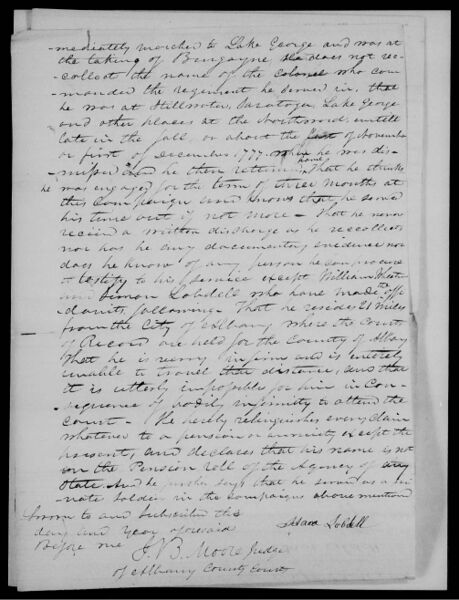 mediately marched to Lake George and was at
the taking of Burgoyne, He does not rec-
-collect the name of the colonel who com-
manded the regiment he served in, that
he was at Stillwater, Saratoga, Lake George
and other places at the Northward, untill
late in the fall, or about the last of November
or first of December 1777. when he was dis-
missed and he then returned home That he thinks
he was engaged for the term of three months at
this Campaign and knows that he served
his time out if not more - That he never
received a written discharge as he recollects
nor has he any documentary evidence nor
does he know of any person he can procure
to testify to his service except William
and Simon Lobdell who have made affi-
davits following. That he resides 21 miles
from the City of Albany where the Courts
of Record are held for the County of Albany
That he is very infirm and is entirely
unable to travel that distance, and that
it is utterly impossible for him in Con-
sequence of bodily infirmity to attend the
Court - He hereby relinquishes every claim
whatever to a pension or annuity except the
present, and declares that his name is not
on the Pension roll of the Agency of any
State. And he further says that he served as a pri-
vate soldier in the campaigns above mentioned
Sworn to and subscribed the
day and year aforesaid
Before me
Isaac Lobdell
J. B. Moore Judge
of Albany County Court